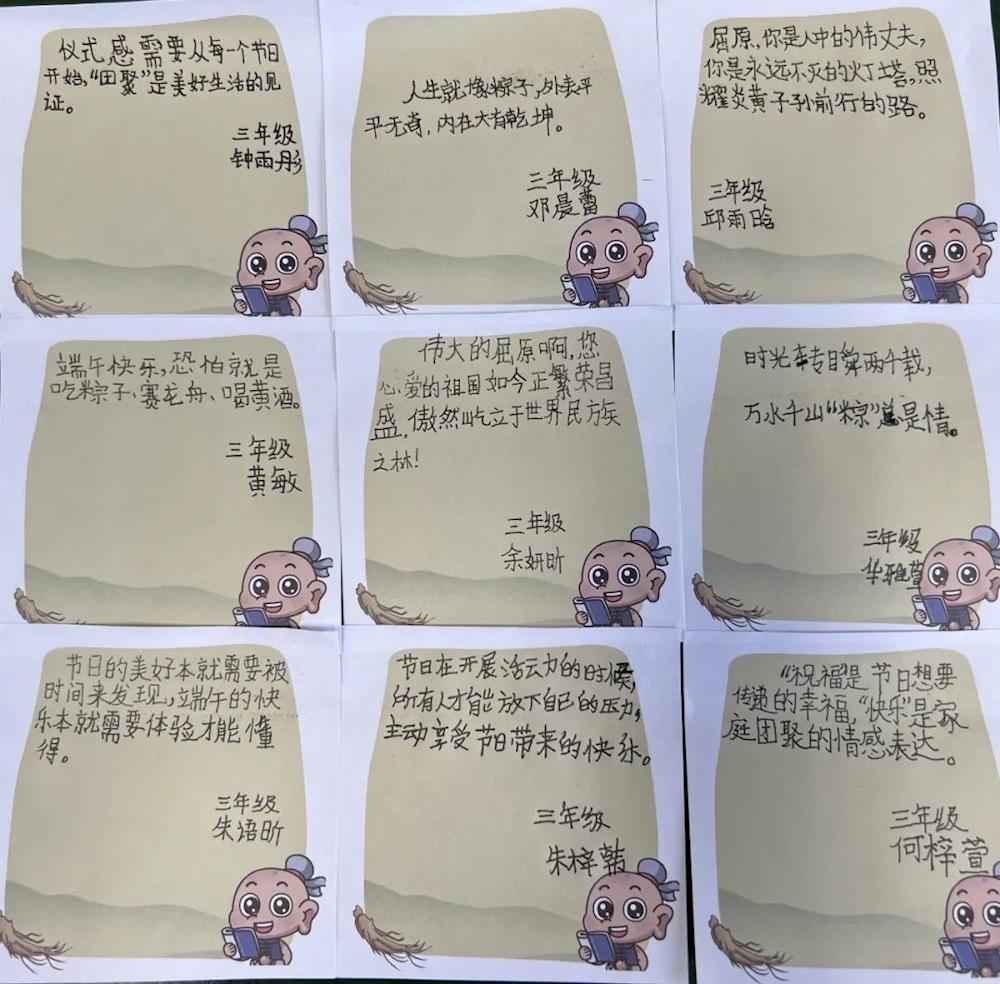 仪式感需要从每一个节日
开始,“团聚”是美好生活的见
证。
三年级
钟雨彤
人生就像粽子,外表平
平无奇,内在大有乾坤。
三年级
邓晨蕾
屈原,你是人中的伟丈夫,
你是永远不灭的灯塔,照
耀炎黄子孙前行的路。
三年级
邱雨晗
端午快乐,恐怕就是
吃粽子、赛龙舟、喝黄酒。
三年级
黄敏
伟大的屈原啊,您
心爱的祖国如今正繁荣昌
盛,傲然屹立于世界民族
之林!
三年级
余妍昕
时光李专目舜两千载,
万水千山“粽”总是情。
三年级
华雅萱
节日的美好本就需要被
时间来发现,端午的快
乐本就需要体验才能懂
得。
三年级
朱语昕
节日在开展活动的时候,
所有人才能放下自己的压力,
主动享受节日带来的快乐。
三年级
朱梓韩
“祝福”是节日想要
传递的幸福,“快乐”是家
庭团聚的情感表达。
三年级
何梓萱